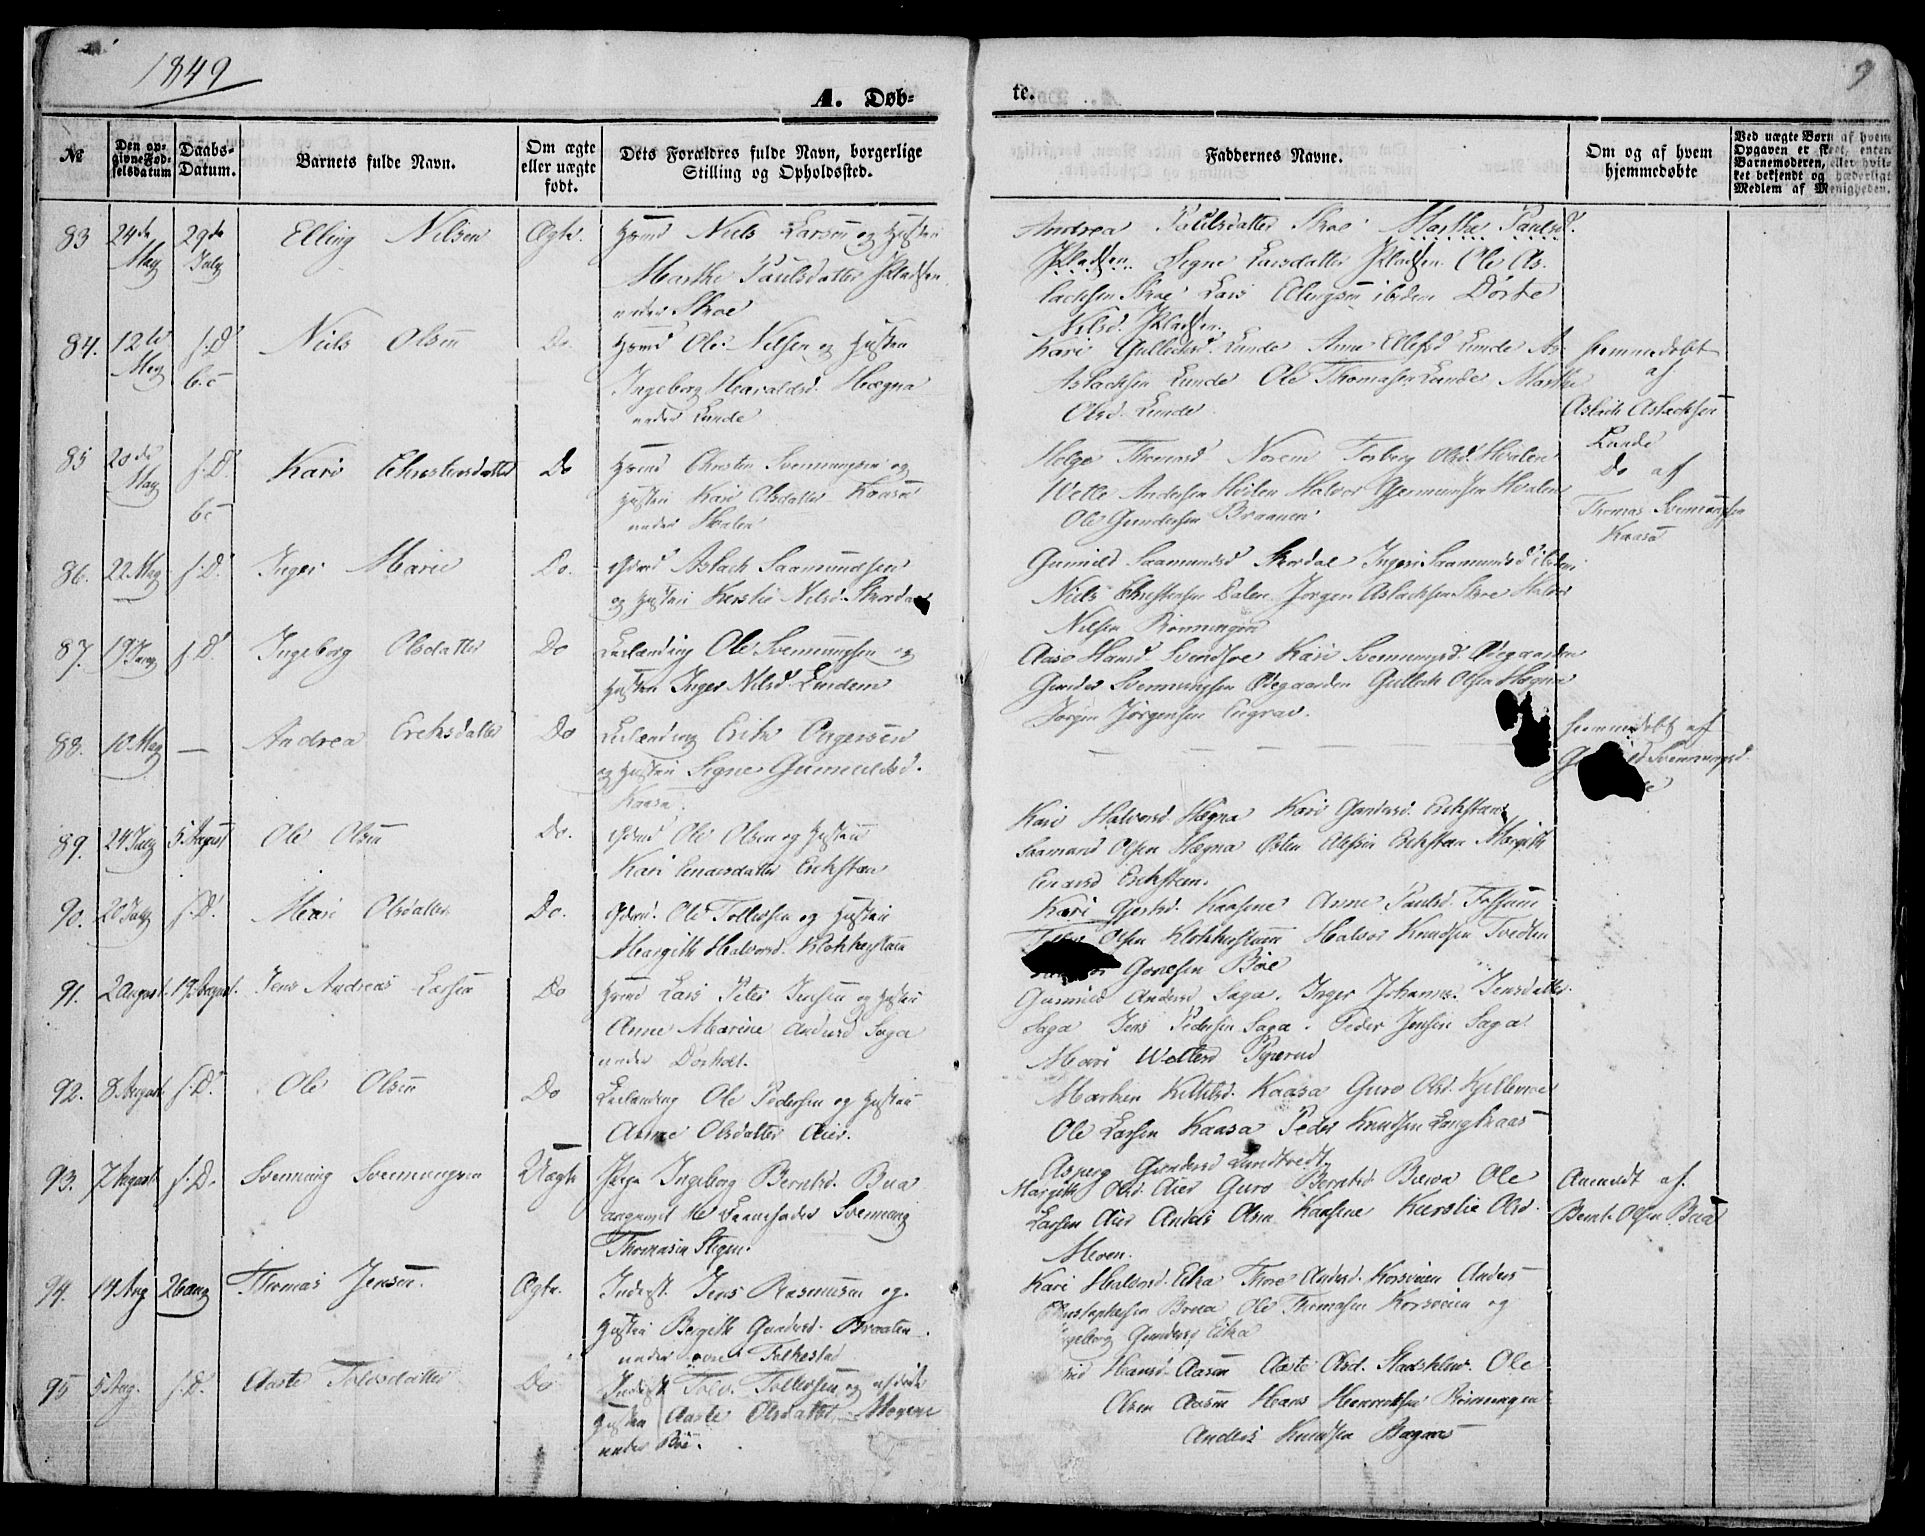 1849
9
A. Døb-
te.
№
Den op-
givne Fød-
selsdatum
Daabs-
Datum.
Barnets fulde Navn.
Om ægte
eller uægte
født.
Dets Forældres fulde Navn, borgerlige
Stilling og Opholdssted.
Faddernes Navne.
Om og af hvem
hjemmedøbte
Ved uægte Børn af hvem
Opgaven er skeet, enten
Barnemoderen, eller hvil-
ket bekjendt og hæderligt
Medlem af Menigheden.
83 24de May 29de July Elling Nilsen Ægte. Niels Larsen og Hustru
Marthe Paulsdatter Pladsen
under Skoe
Andrea Paulsdatter Skoe Marthe Paulsd.
Pladsen Signe Larsdatter Pladsen Ole As-
lachsen Skoe Lars Ellingsen ibidem Dorte
Nilsd. Pladsen.
84. 12te May s. D. Niels Olsen Do. Ole Nilsen og Hustru
Ingeborg Haraldsd. Hægna
under Lunde
Kari Gullichsd. Lunde Anne Ellefsd Lunde As-
Aslachsen Lunde Ole Thomasen Lunde Marthe
Olsd. Lunde
hjemmedøbt
af
Aslach Aslachsen
Lunde
85 20de May s. D. Kari Christensdatter Do Christen Svennungsen og
Hustru Kari Olsdatter Kaasa
under Hvalen
Helge Thomasd Norem Torberg Olsd. Hvalen
Wetle Andersen Hvalen Halvor Gjermundsen Hvalen
Ole Gundersen Braanen
Do af
Thomas Svennungsen
Kaasa
86. 22 May s. D. Inger Marie Do. Aslach Saamundsen
og Hustru Kirstie Nilsd. Skordal
Gunild Saamundsd Skordal Ingeri Saamundsd ibidem
Niels Christensen Dalen Jørgen Aslachsen Skoe Halvor
Nilsen Rønningen
87. s. D. Ingeborg Olsdatter Do Leilænding Ole Svennungsen og
Hustru Inger Nilsd Lindem
Aase Hansd. Svendsøe Kari Svennungsd. Ødegaarden
Gunder Svennungsen Ødegaarden Gullich Olsen Hægna
Jørgen Jørgensen Engrav.
88. 10 May — Andrea Eriksdatter Do Leilænding Erik
og Hustru Signe Gunnuldsd.
Kaasa
hjemmedøbt af
Svennungsd.
89. 24 July 5 August Ole Olsen Do. Ole Olsen og Hustru
Kari Einarsdatter Erikstein
Kari Halvorsd Hægna Kari Gundersd. Erikstein
Saamund Olsen Hægna Østen Erikstein Margith
Einarsd Erikstein.
90. 20 July s. D. Mari Olsdatter Do. Ole Tollefsen og Hustru
Margith Halvorsd. Klokkerstuen
Kari Gjertsd. Kaasene Anne Paulsd. Fossum
Olsen Klokkerstuen Halvor Knudsen Tvedten
Goresen Bøe
91. 2 August 19 August Jens Andreas Larsen Do Lars Peter Jensen og Hustru
Anne Marine Andersd Saga
under Dorholt.
Gunnild Andersd Saga. Inger Johanne Jensdatter
Saga Jens Pedersen Saga. Peder Jensen Saga
Mari Wetlesd
92. 8 August s. D. Ole Olsen Do Leilænding Ole Pedersen og Hustru
Anne Olsdatter Aier.
Marthen Kittilsd. Kaasa Guro Olsd.
Ole Larsen Kaasa Peder Knudsen Langkaas
Asperg Gundersd Lundtvedt.
93. 7 August s. D. Svennung Svennungsen Uægte Pige Ingeborg Berntsd. Bua
Barnefader Svennung
Thomasen Stegen.
Margith Olsd. Aier Guro Berntsd Buven Ole
Larsen Aier Anders Olsen Kaasene Kierstie Olsd.
Moren.
Anmeldt af.
Bernt Olsen Bua
94. 14 Aug 26 Aug Thomas Jensen. Ægte. Inderst. Jens Rasmusen og
Hustru Bergith Gundersd. Braaten
under øvre Folkestad
Kari Halvorsd. Eika Thore Andersd. Korsveien Anders
Christophersen Ole Thomasen Korsveien og
Ingeborg Gundersd Eika
95 5 Aug. s. D. Aaste Tolvsdatter Do Inderst. Tolv Tollefsen og afdøde
Hustru Aaste Olsdatter Moerne
under Bøe.
Hansd. Aasen Aaste Olsd. Ole
Olsen Aasen Hans Henriksen Rønningen
Anders Knudsen